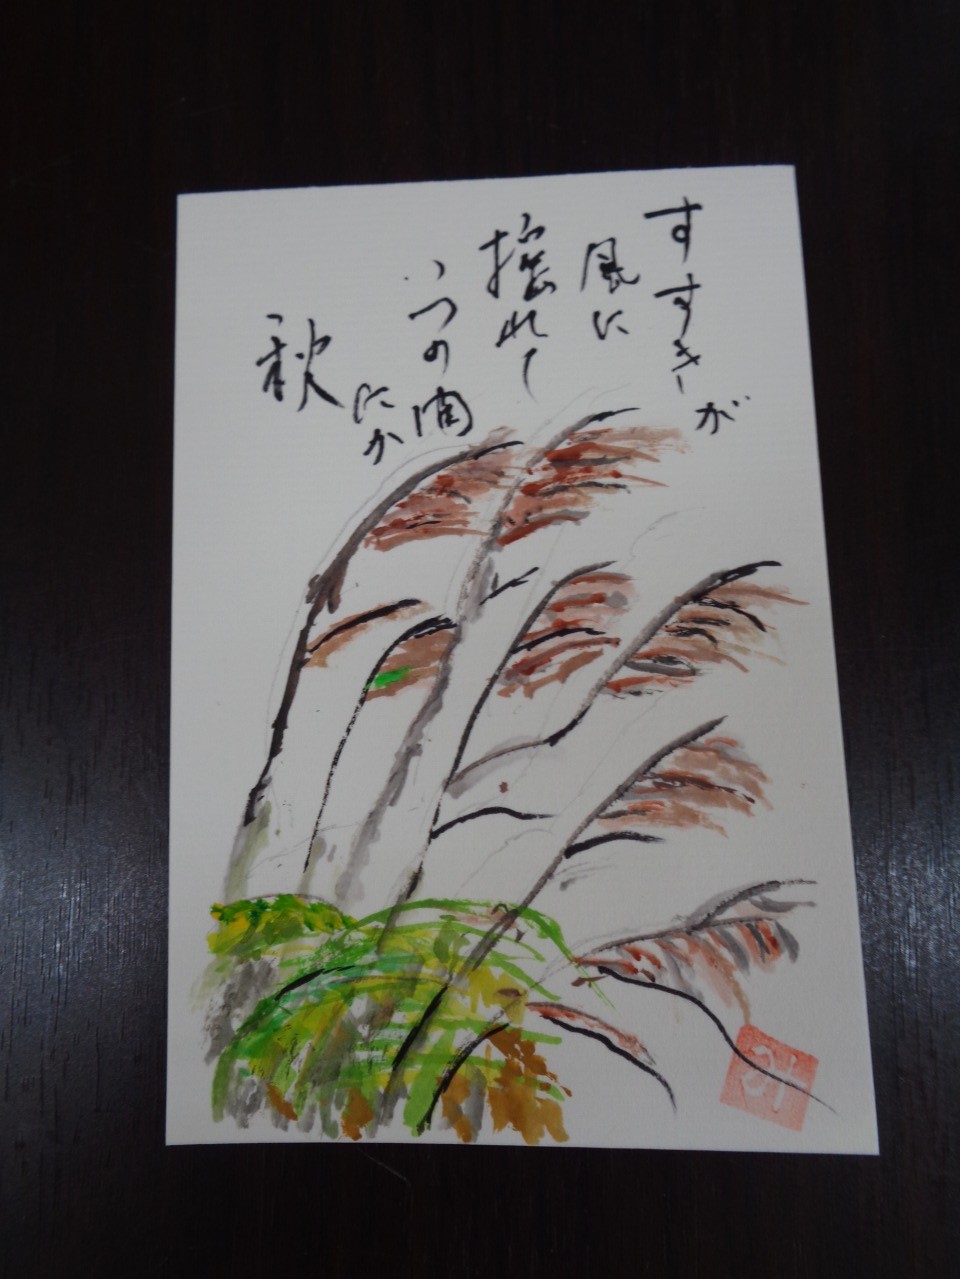 すすきが
風に
揺れて
いつの間
にか
秋